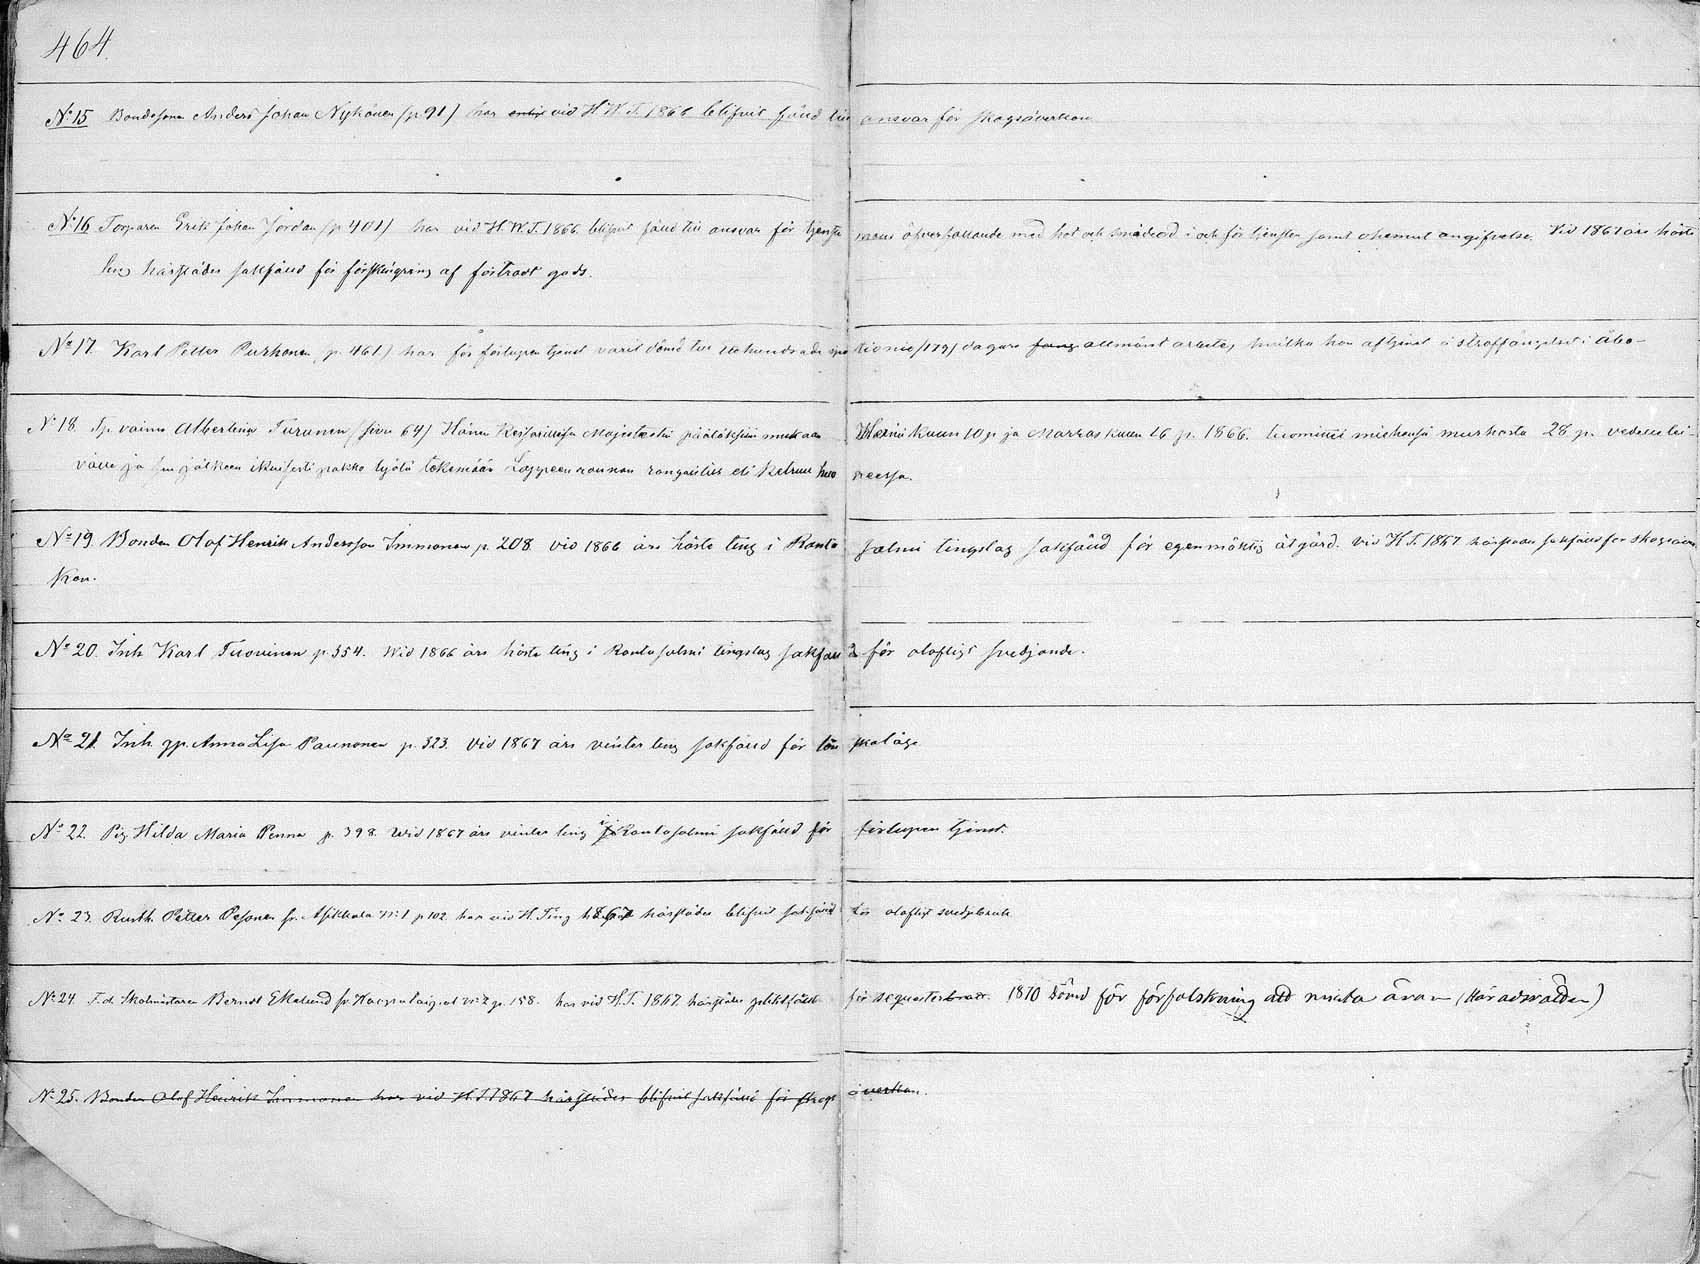 464.
No 15 Bondesonen Anders Johan Nykänen (p 91) har vid H. W. T. 1866 blifvit fäld till ansvar för skogsåverkan
No 16 Torparen Erik Johan Jordan (p 401) har vid H. W. T. 1866 blifvit fäld till ansvar för tjenste mans öfverfallande med hot och smädeord i och för tjensten samt ohemul angifvelse. Vid 1867 års höste
ting härstädes sakfäld för förskingring af förtrodt gods.
No 17. Karl Petter Purhonen, p. 461.) har för förlupen tjenst varit dömd till etthundrade sju ttionio (179) dagars fäng allmänt arbete, hvilka han aftjenat å straffängelset i Åbo-
No 18. Tp. vaimo Albertina Turunen (sivu 64) Hänen Keisarillisen Majestætin päätöksen mukaan Helmi Kuun 10 p ja Marras Kuun 26 p. 1866. tuomittu miehensä murhasta 28 p. vedellä lei-
vällä ja sen jälkeen ikuisesti pakko työtä tekemään Lappeenrannan rangaistus eli Ketruu huo neessa.
No 19. Bonden Olof Henrik Andersson Immonen p. 208. vid 1866 års höste ting i Ranta salmi tingslag sakfäld för egenmäktig åtgärd. vid H. T. 1867 härstädes sakfäld för skogsåver
kan.
No 20. Inh Karl Tuovinen p. 354. Wid 1866 års höste ting i Rantasalmi tingslag sakfäll d för olofligt svedjande.
No 21. Inh. gp. Anna Lisa Paunonen p. 323. Vid 1867 års vinter ting sakfäld för lön skaläge
No 22. Pig Hilda Maria Penna p. 398. Wid 1867 års vinter ting i Rantasalmi sakfäld för förlupen tjenst.
No 23. Rusth. Petter Pesonen fr. Asikkala No 1 p 102. har vid H. Ting 1867 härstädes blifvit sakfäld för olofligt svedjebruk
No 24. F. d. Skolmästaren Berndt Ekelund fr Haapataipal No 2 p. 158. har vid H. T. 1867 härstädes sakfäld för sequesterbrott. 1870 dömd för förfalskning att mista äran (Häradsrätten)
No 25. Bonden Olof Henrik Immonen har vid H. T. 1867 härstädes blifvit sakfäld för skogs åverkan.